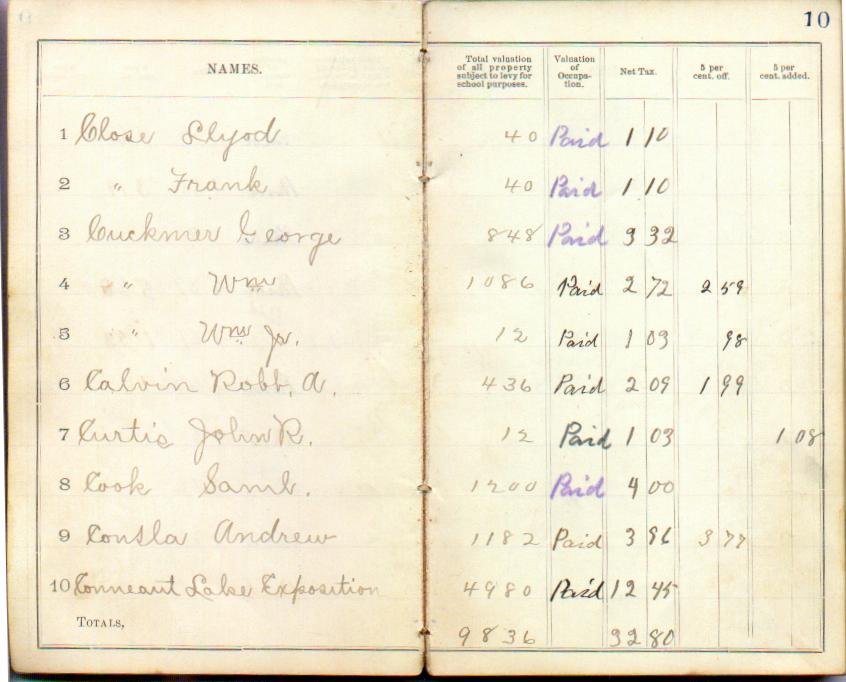 10
NAMES. Total valuation of all property subject to levy for school purposes. Valuation of Occupa-tion. Net Tax. 5 per cent. off. 5 per cent. added.
1 Close Llyod 40 Paid 1 10
2 " Frank 40 Paid 1 10
3 Cuckmer George 848 Paid 3 32
4 " Wm 1086 Paid 2 72 2 59
5 " Wm Jr. 12 Paid 1 03 98
6 Calvin Robt. A. 436 Paid 2 09 1 99
7 Curtis John R. 12 Paid 1 03 1 08
8 Cook Saml. 1200 Paid 4 00
9 Consla Andrew 1182 Paid 3 96 3 77
10 Conneaut Lake Exposition 4980 Paid 12 45
TOTALS, 9836 32 80